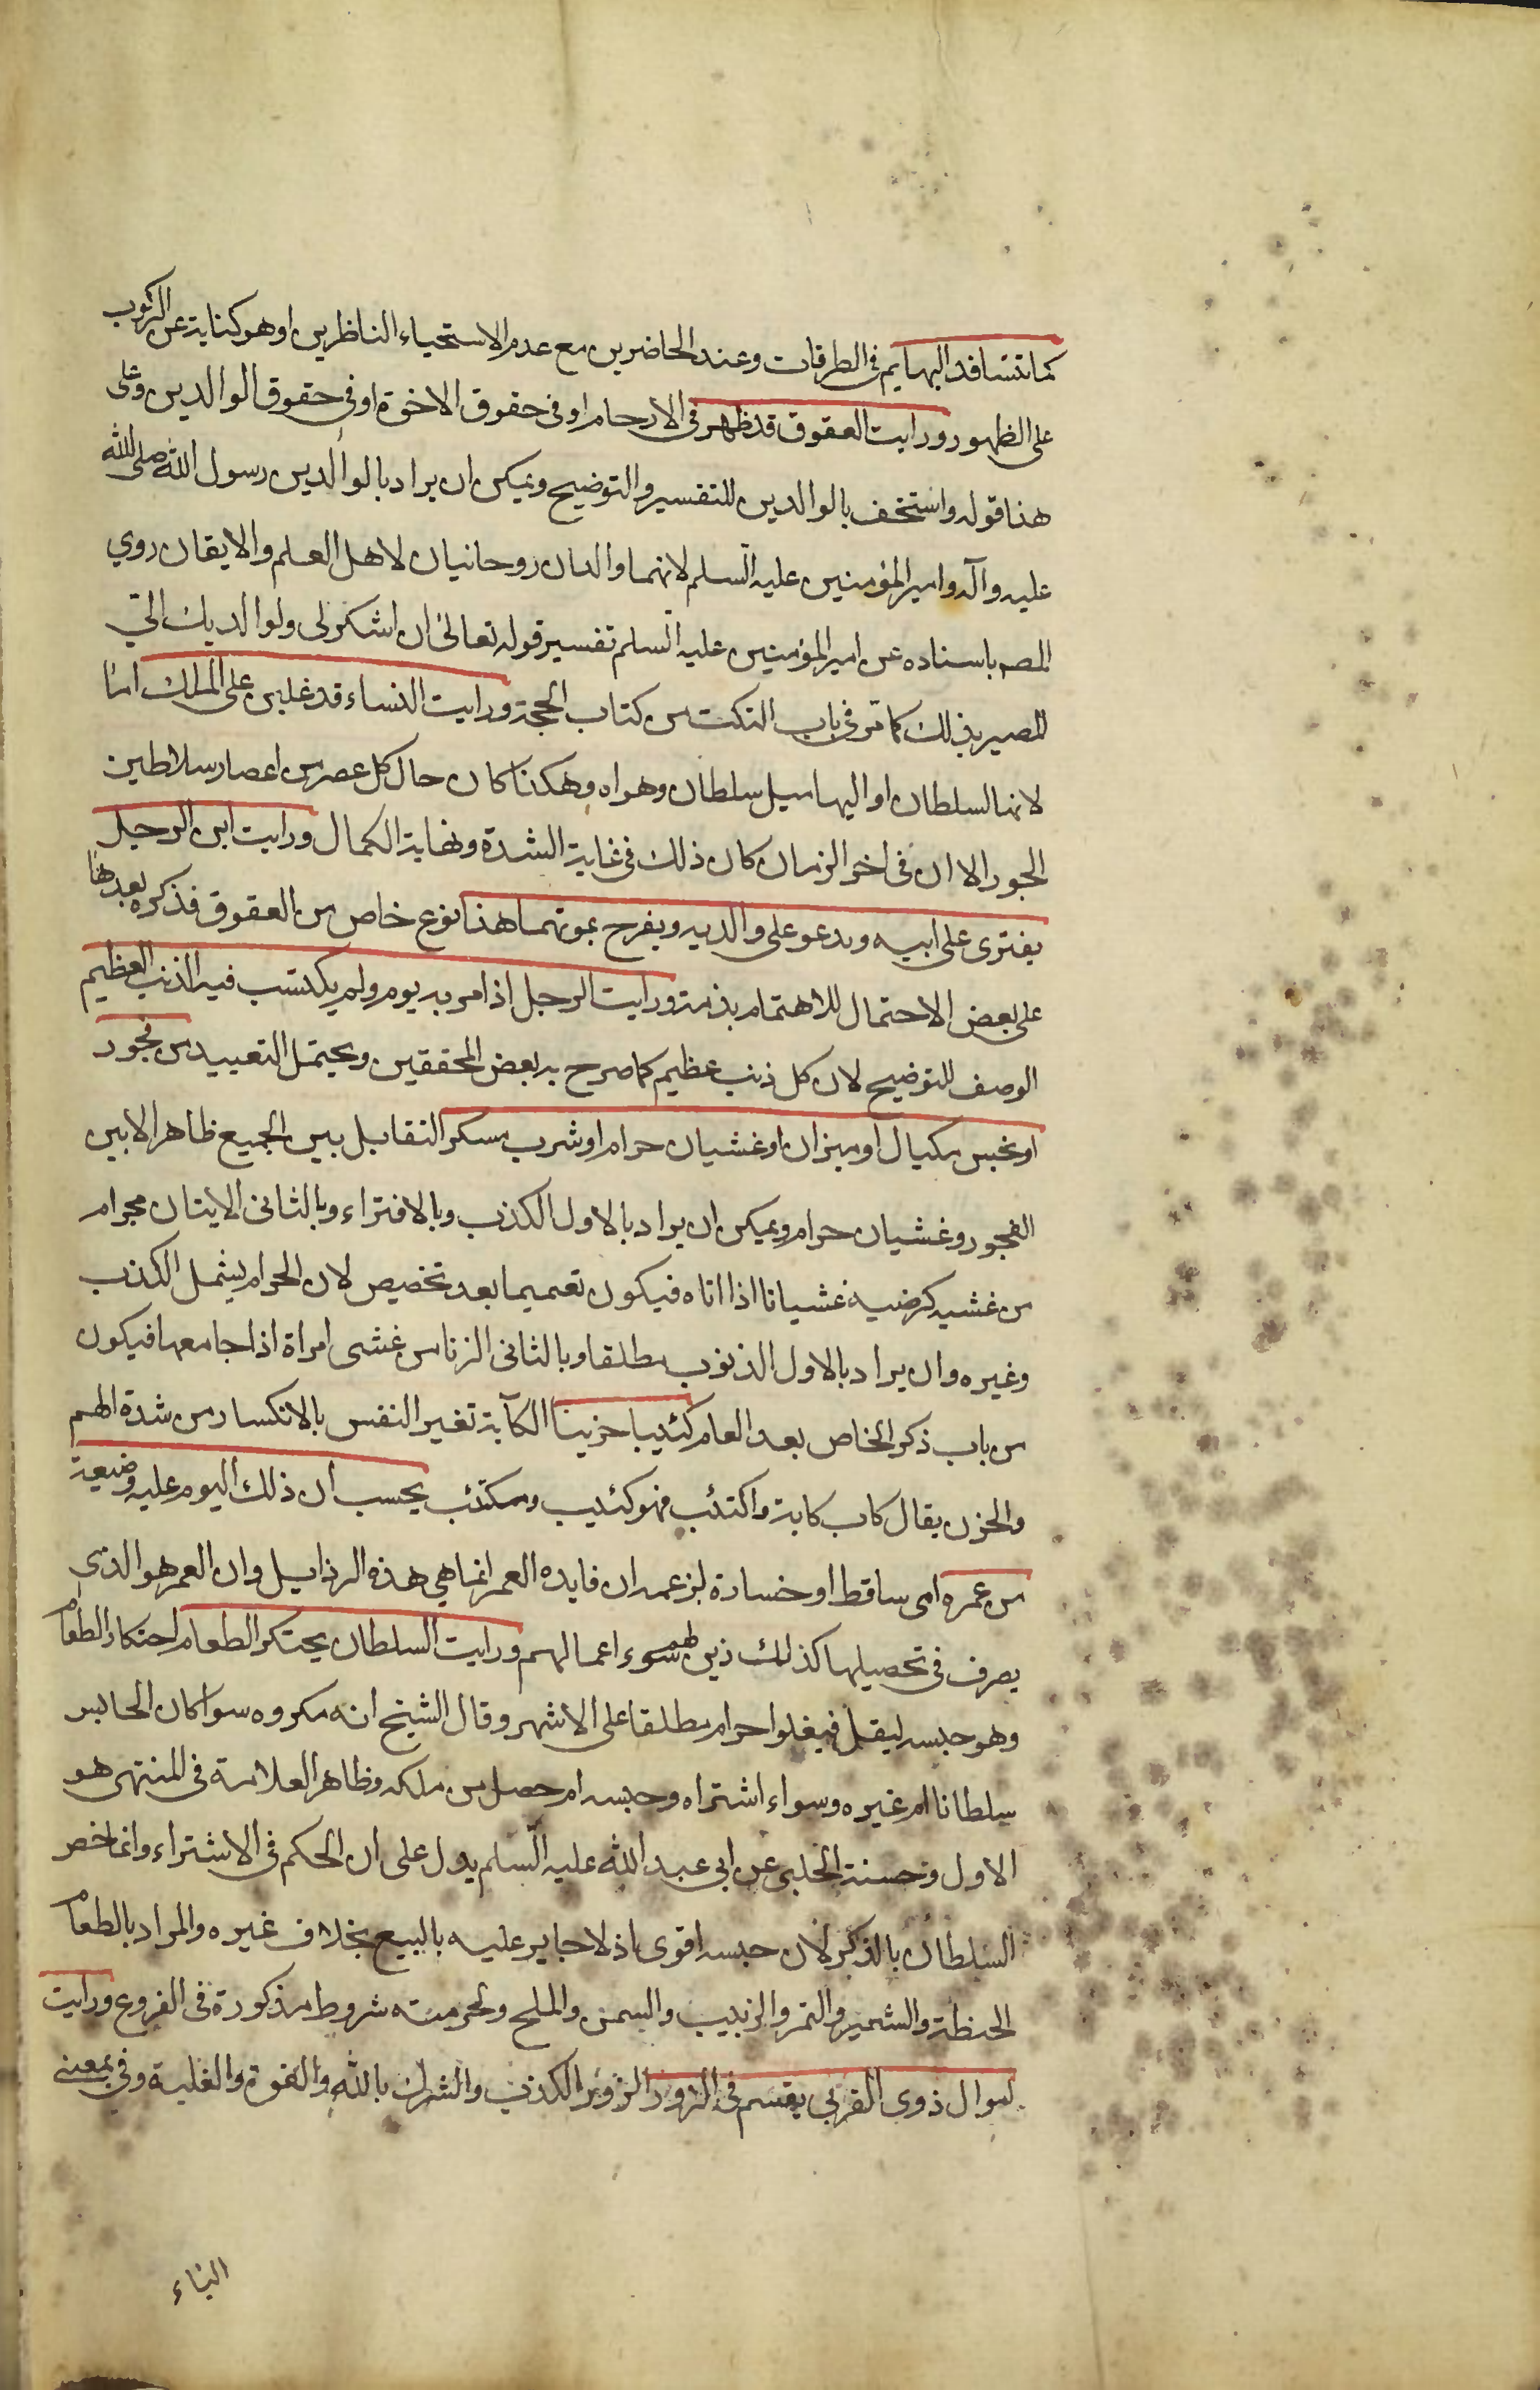 كما تتسافد البهايم في الطرقات وعند الحاضرين مع عدم الاستحياء الناظرين او هو كناية عن الركوب
على الظهور ورايت العقوق قد ظهر في الارحام او في حقوق الاخوة او في حقوق الوالدين وعلى
هذا قوله واستخف بالوالدين للتفسير والتوضيح ويمكن ان يراد بالوالدين رسول الله صلى الله
عليه وآله وامير المؤمنين عليه السلم لانهما والدان روحانيان لاهل العلم والايقان روي
المصه باسناده عن امير المؤمنين عليه السلم تفسير قوله تعالى ان اشكر لى ولوالديك الي
المصير بذلك كما مر في باب النكت من كتاب الحجة ورايت النساء قد غلبن على الملك اما
لانها السلطان او اليها ميل سلطان وهواه وهكذا كان حال كل عصر من اعصار سلاطين
الجور الا ان في اخر الزمان كان ذلك في غاية الشدة ونهاية الكمال ورايت ابن الرجل
يفترى على ابيه ويدعو على والديه ويفرح بموتهما هذا نوع خاص من العقوق فذكره بعدها
على بعض الاحتمال للاهتمام بذمه ورايت الرجل اذا مر به يوم ولم يكتسب فيه الذنب العظيم
الوصف للتوضيح لان كل ذنب عظيم كما صرح به بعض المحققين ويحتمل التقييد من فجور
او بخس مكيال او ميزان او غشيان حرام او شرب مسكر التقابل بين الجميع ظاهر الا بين
الفجور وغشيان حرام ويمكن ان يراد بالاول الكذب وبالافتراء وبالثانى الايتان بحرام
من غشيه كرضيه غشيانا اذا اتاه فيكون تعميما بعد تخصيص لان الحرام يشمل الكذب
وغيره وان يراد بالاول الذنوب مطلقا وبالثانى الزنا من غشى امراة اذا جامعها فيكون
من باب ذكر الخاص بعد العام كئيبا حزينا الكآبة تغير النفس بالانكسار من شدة الهم
والحزن يقال كاب كابة واكتئب فهو كئيب ومكتئب يحسب ان ذلك اليوم عليه وضيعة
من عمره اى ساقط او خسارة لزعمه ان فايده العمر انما هي هذه الرذايل وان العمر هو الذي
يصرف في تحصيلها كذلك زين لهم سوء اعمالهم ورايت السلطان يحتكر الطعام احتكار الطعام
وهو حبسه ليقل فيغلوا حرام مطلقا على الاشهر وقال الشيخ انه مكروه سوا كان الحابس
سلطانا ام غيره وسواء اشتراه وحبسه ام حصل من ملكه وظاهر العلامة في المنتهى هو
الاول وحسنة الحلبى عن ابى عبد الله عليه السلم يدل على ان الحكم في الاشتراء وانما خص
السلطان بالذكر لان حبسه اقوى اذ لا جابر عليه بالبيع بخلاف غيره والمراد بالطعام
الحنظة والشعير والتمر والزبيب والسمن والملح ولحرمته شروط مذكورة في الفروع ورايت
اموال ذوى القربى يقسم في الزور الزور الكذب والشرك بالله والقوة والغلبة وفي بمعنى
الباء